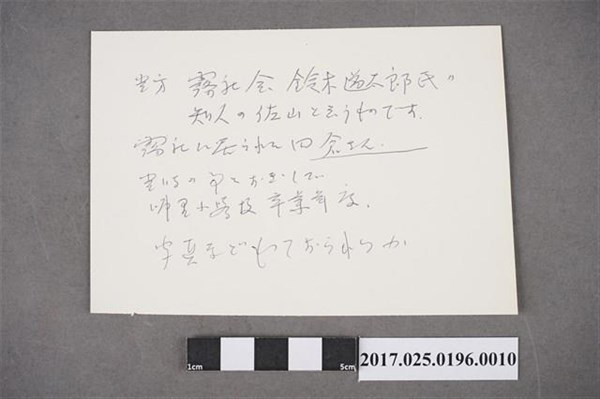 当方 霧社会 鈴木 太郎氏の
知人の佐山と云うものです.
霧社に居られた田倉さん.
当時の
小学校 卒業年度.
写真などもっておられるか
1cm
5cm
2017.025.0196.0010